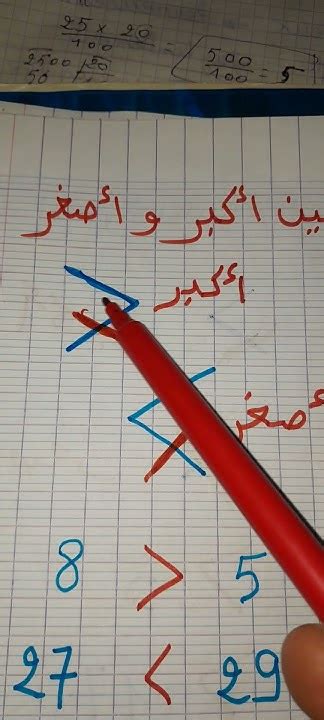 25 x 20
100
=
500
100
= 5
2500
50
ين أكبر و أصغر
> أكبر
< أصغر
8 > 5
27 < 29